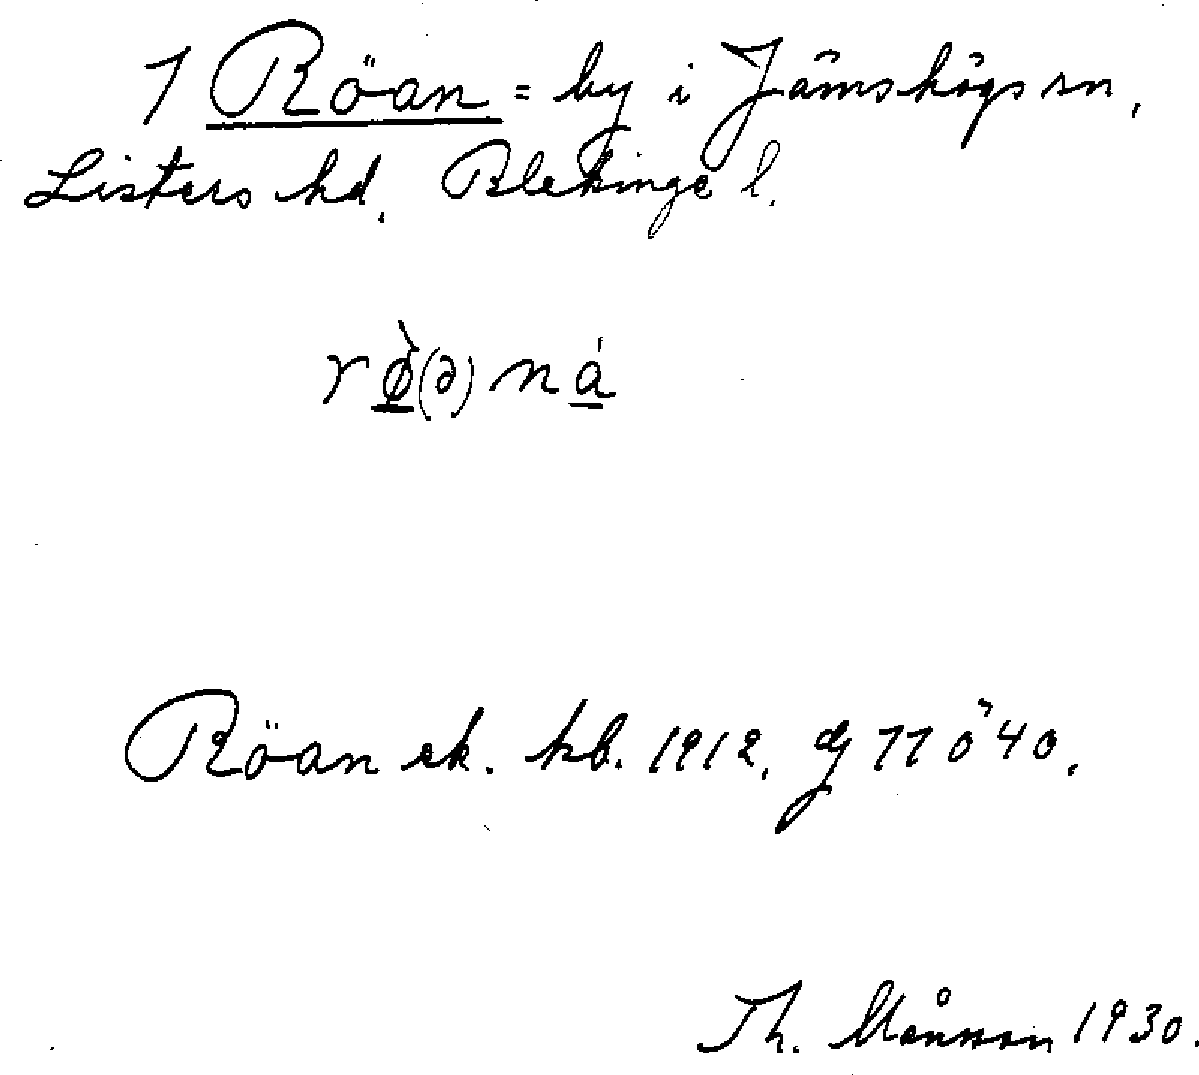 1 Röan = by i Jämshögs sn,
Listers hd, Blekinge l.
rø̀(ə)ná
Röan ek. kb. 1912, G 11 ö 40.
Th. Månsson 1930.